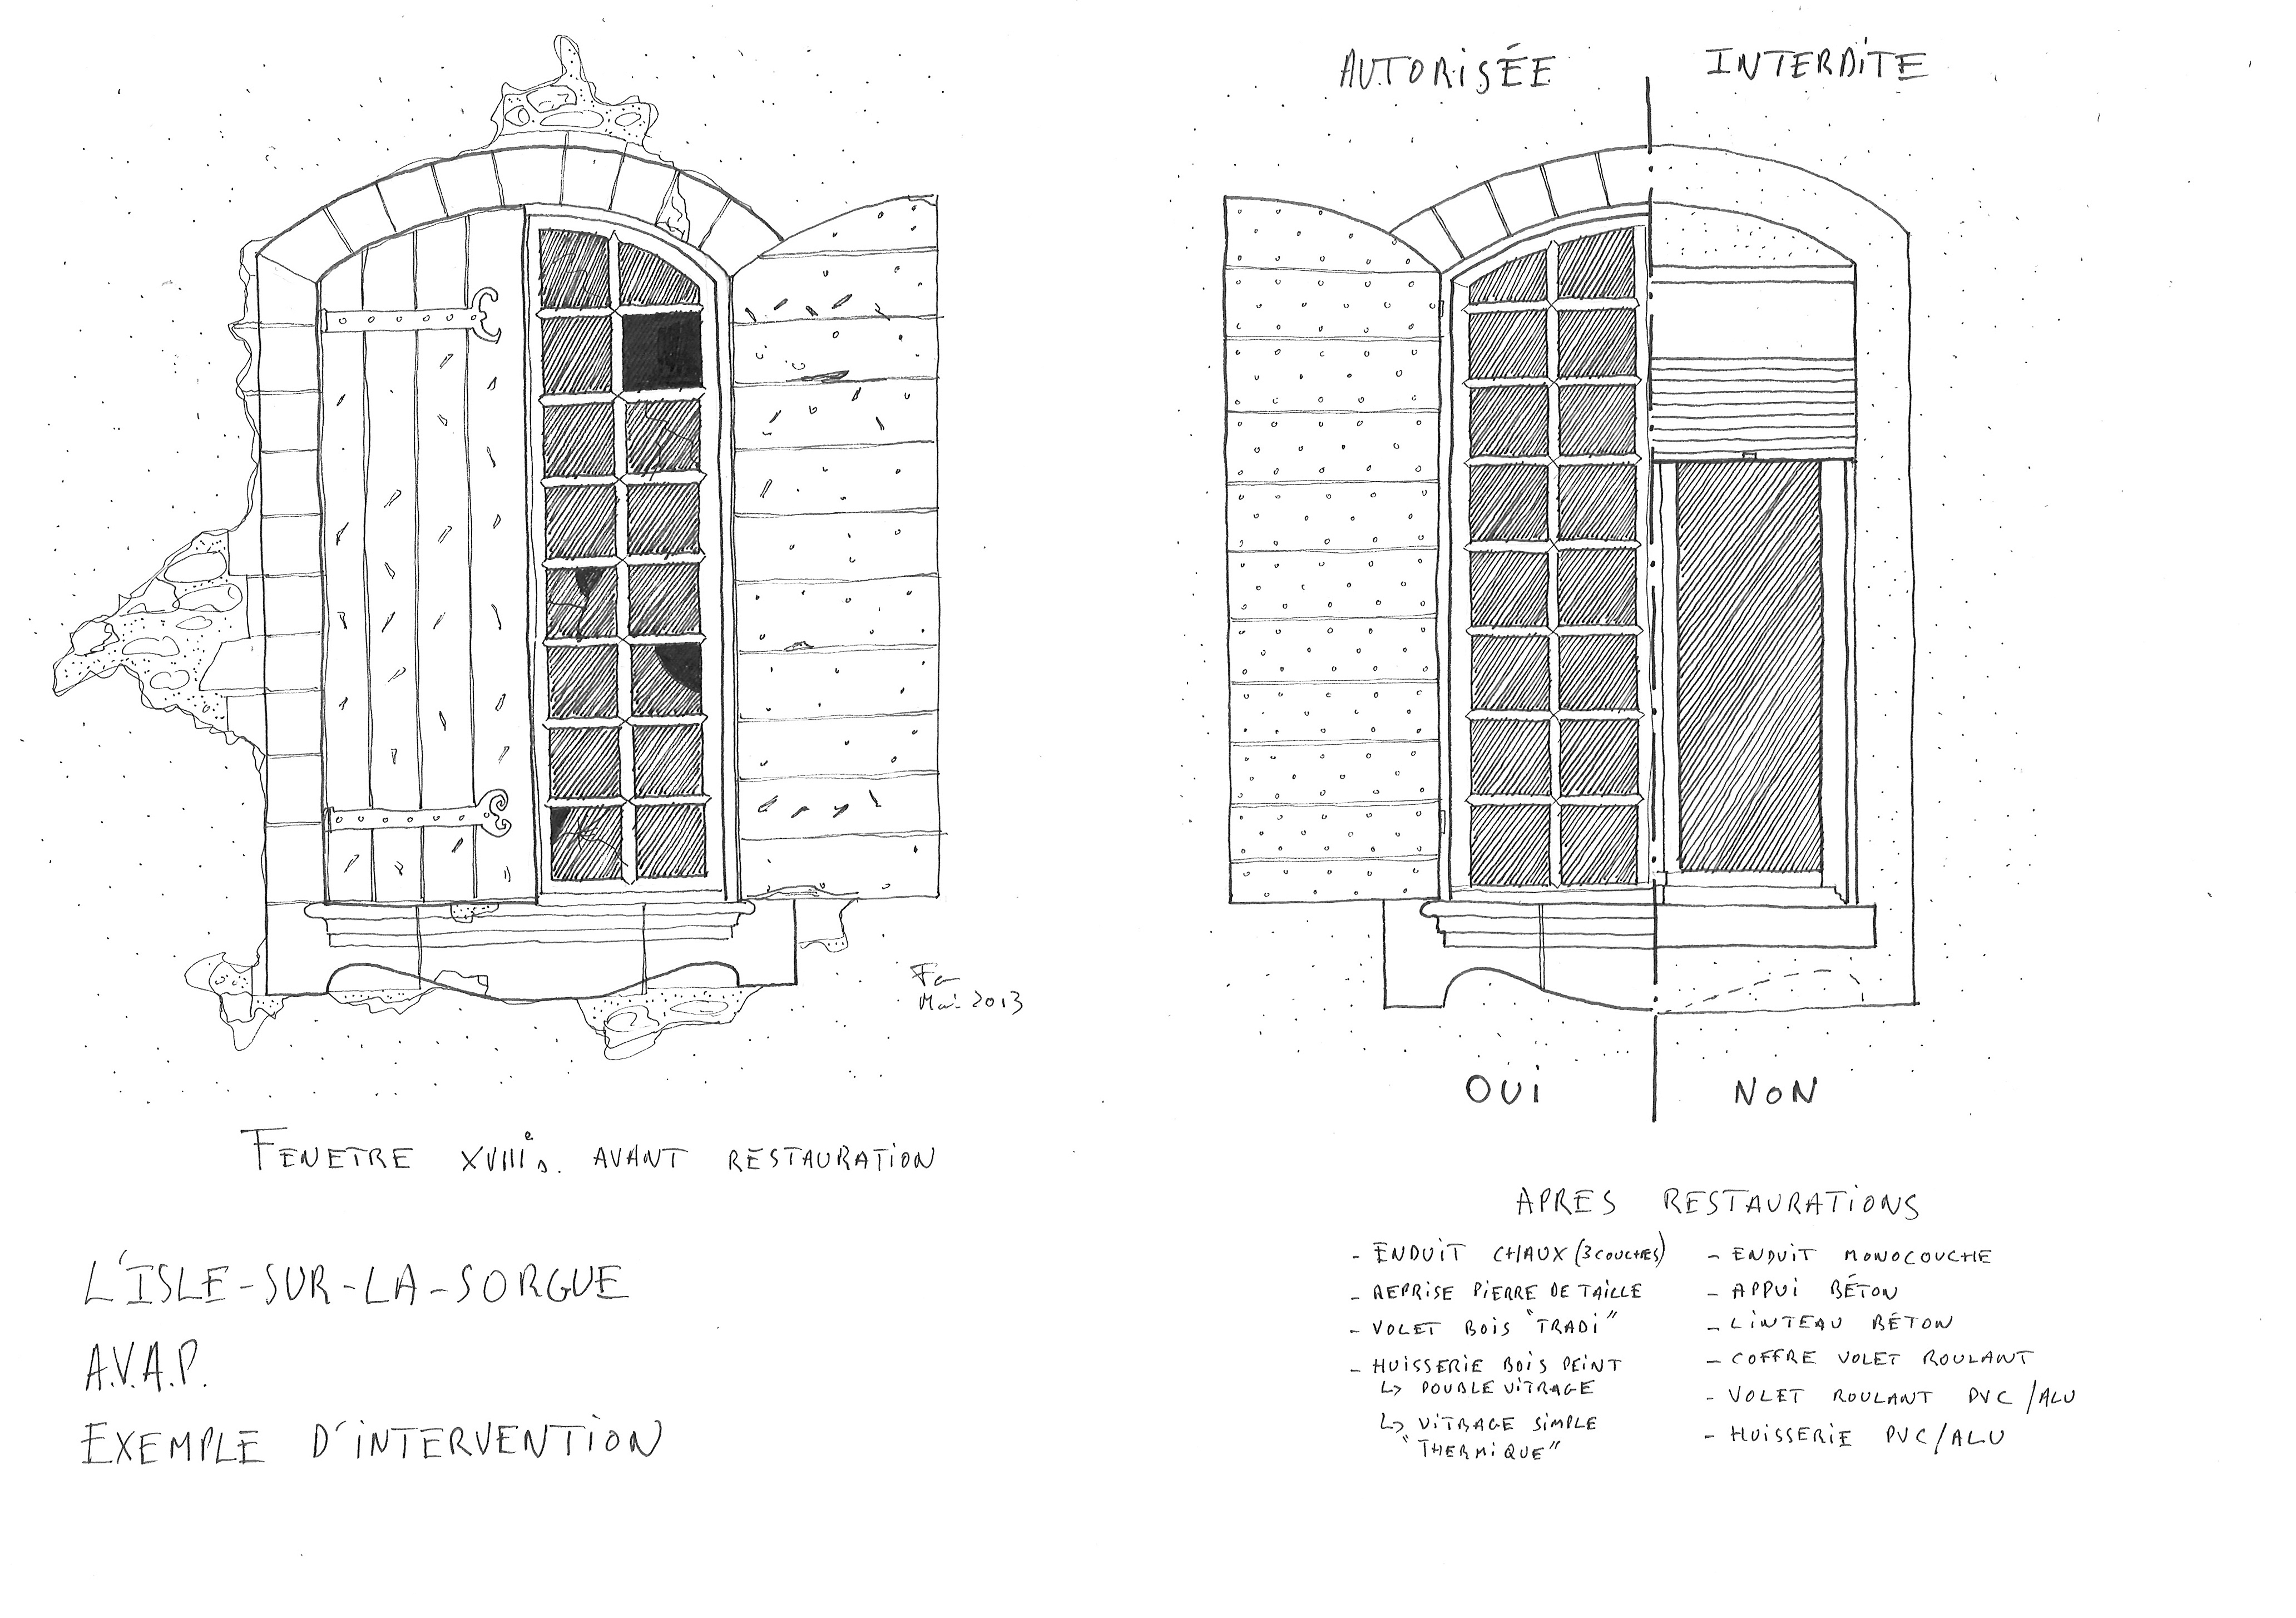 AUTORISÉE
INTERDITE
Mai 2013
OUI
NON
FENETRE XVIIIe s. AVANT RESTAURATION
L'ISLE-SUR-LA-SORGUE
A.V.A.P.
EXEMPLE D'INTERVENTION
APRES RESTAURATIONS
- ENDUIT CHAUX (3 COUCHES)
- REPRISE PIERRE DE TAILLE
- VOLET BOIS "TRADI"
- HUISSERIE BOIS PEINT
↳ DOUBLE VITRAGE
↳ VITRAGE SIMPLE
"THERMIQUE"
- ENDUIT MONOCOUCHE
- APPUI BÉTON
- LINTEAU BÉTON
- COFFRE VOLET ROULANT
- VOLET ROULANT PVC/ALU
- HUISSERIE PVC/ALU